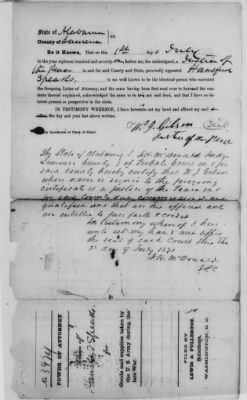 State of Alabama
County of
Be it Known, That on this 1st day of July
in the year eighteen hundred and seventy before me, the undersigned, a Justice of
the Peace in and for said County and State, personally appeared Hansford
Speaks, to me well known to be the identical person who executed
the foregoing Letter of Attorney, and the same having been first read over to him and the contents
thereof explained, acknowledged the same to be his act and deed, and that I have no interest
present or prospective in the claim.
IN TESTIMONY WHEREOF, I have hereunto set my hand and affixed my seal
the day and year last above written.
W. J. Gibson Seal
Justice of the Peace
The State of Alabama I J. H. McDonald Judge
County of Probate Court in & for
said county hereby certify that W. J. Gibson
whose name is signed to the foregoing
certificate is a Justice of the Peace in &
for said County duly commissioned and
qualified and that all his official acts
are entitled to full faith & credit
In testimony whereof I here
unto set my hand and affix
the seal of said Court this the
day of July 1871
J. H. McDonald
No. 3974
POWER OF ATTORNEY
Claim of
Hansford Speaks
for
Goods and supplies taken by
the U. S. Army during the
late War.
FILED BY
LEWIS & FULLERTON,
Solicitors,
WASHINGTON, D. C.